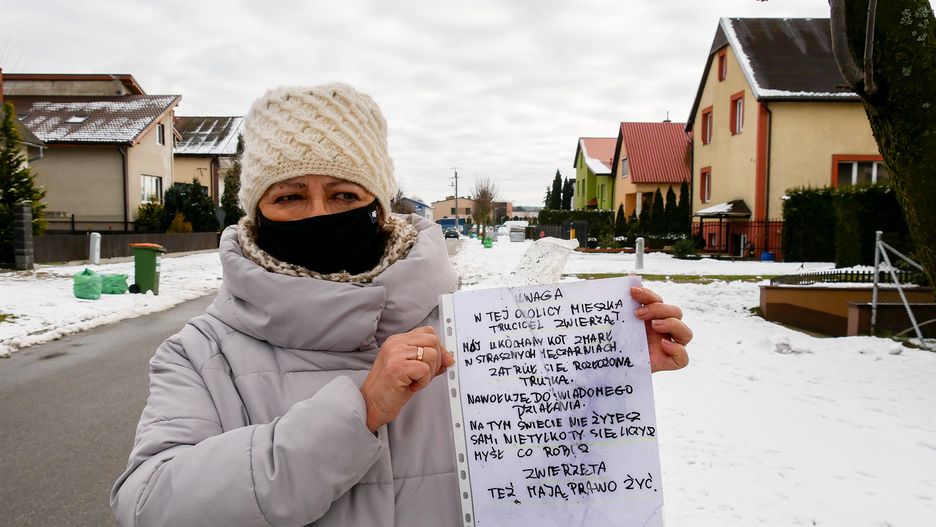 UWAGA
W TEJ OKOLICY MIESZKA
TRUCICIEL ZWIERZĄT.
MÓJ UKOCHANY KOT ZMARŁ
W STRASZNYCH MĘCZARNIACH.
ZATRUŁ SIĘ ROZŁOŻONĄ
TRUTKĄ.
NAWOŁUJĘ DO WIADOMEGO
DZIAŁANIA.
NA TYM ŚWIECIE NIE ŻYJESZ
SAM I NIE TYLKO TY SIĘ LICZYSZ
MYŚL CO ROBISZ
ZWIERZĘTA
TEŻ MAJĄ PRAWO ŻYĆ.